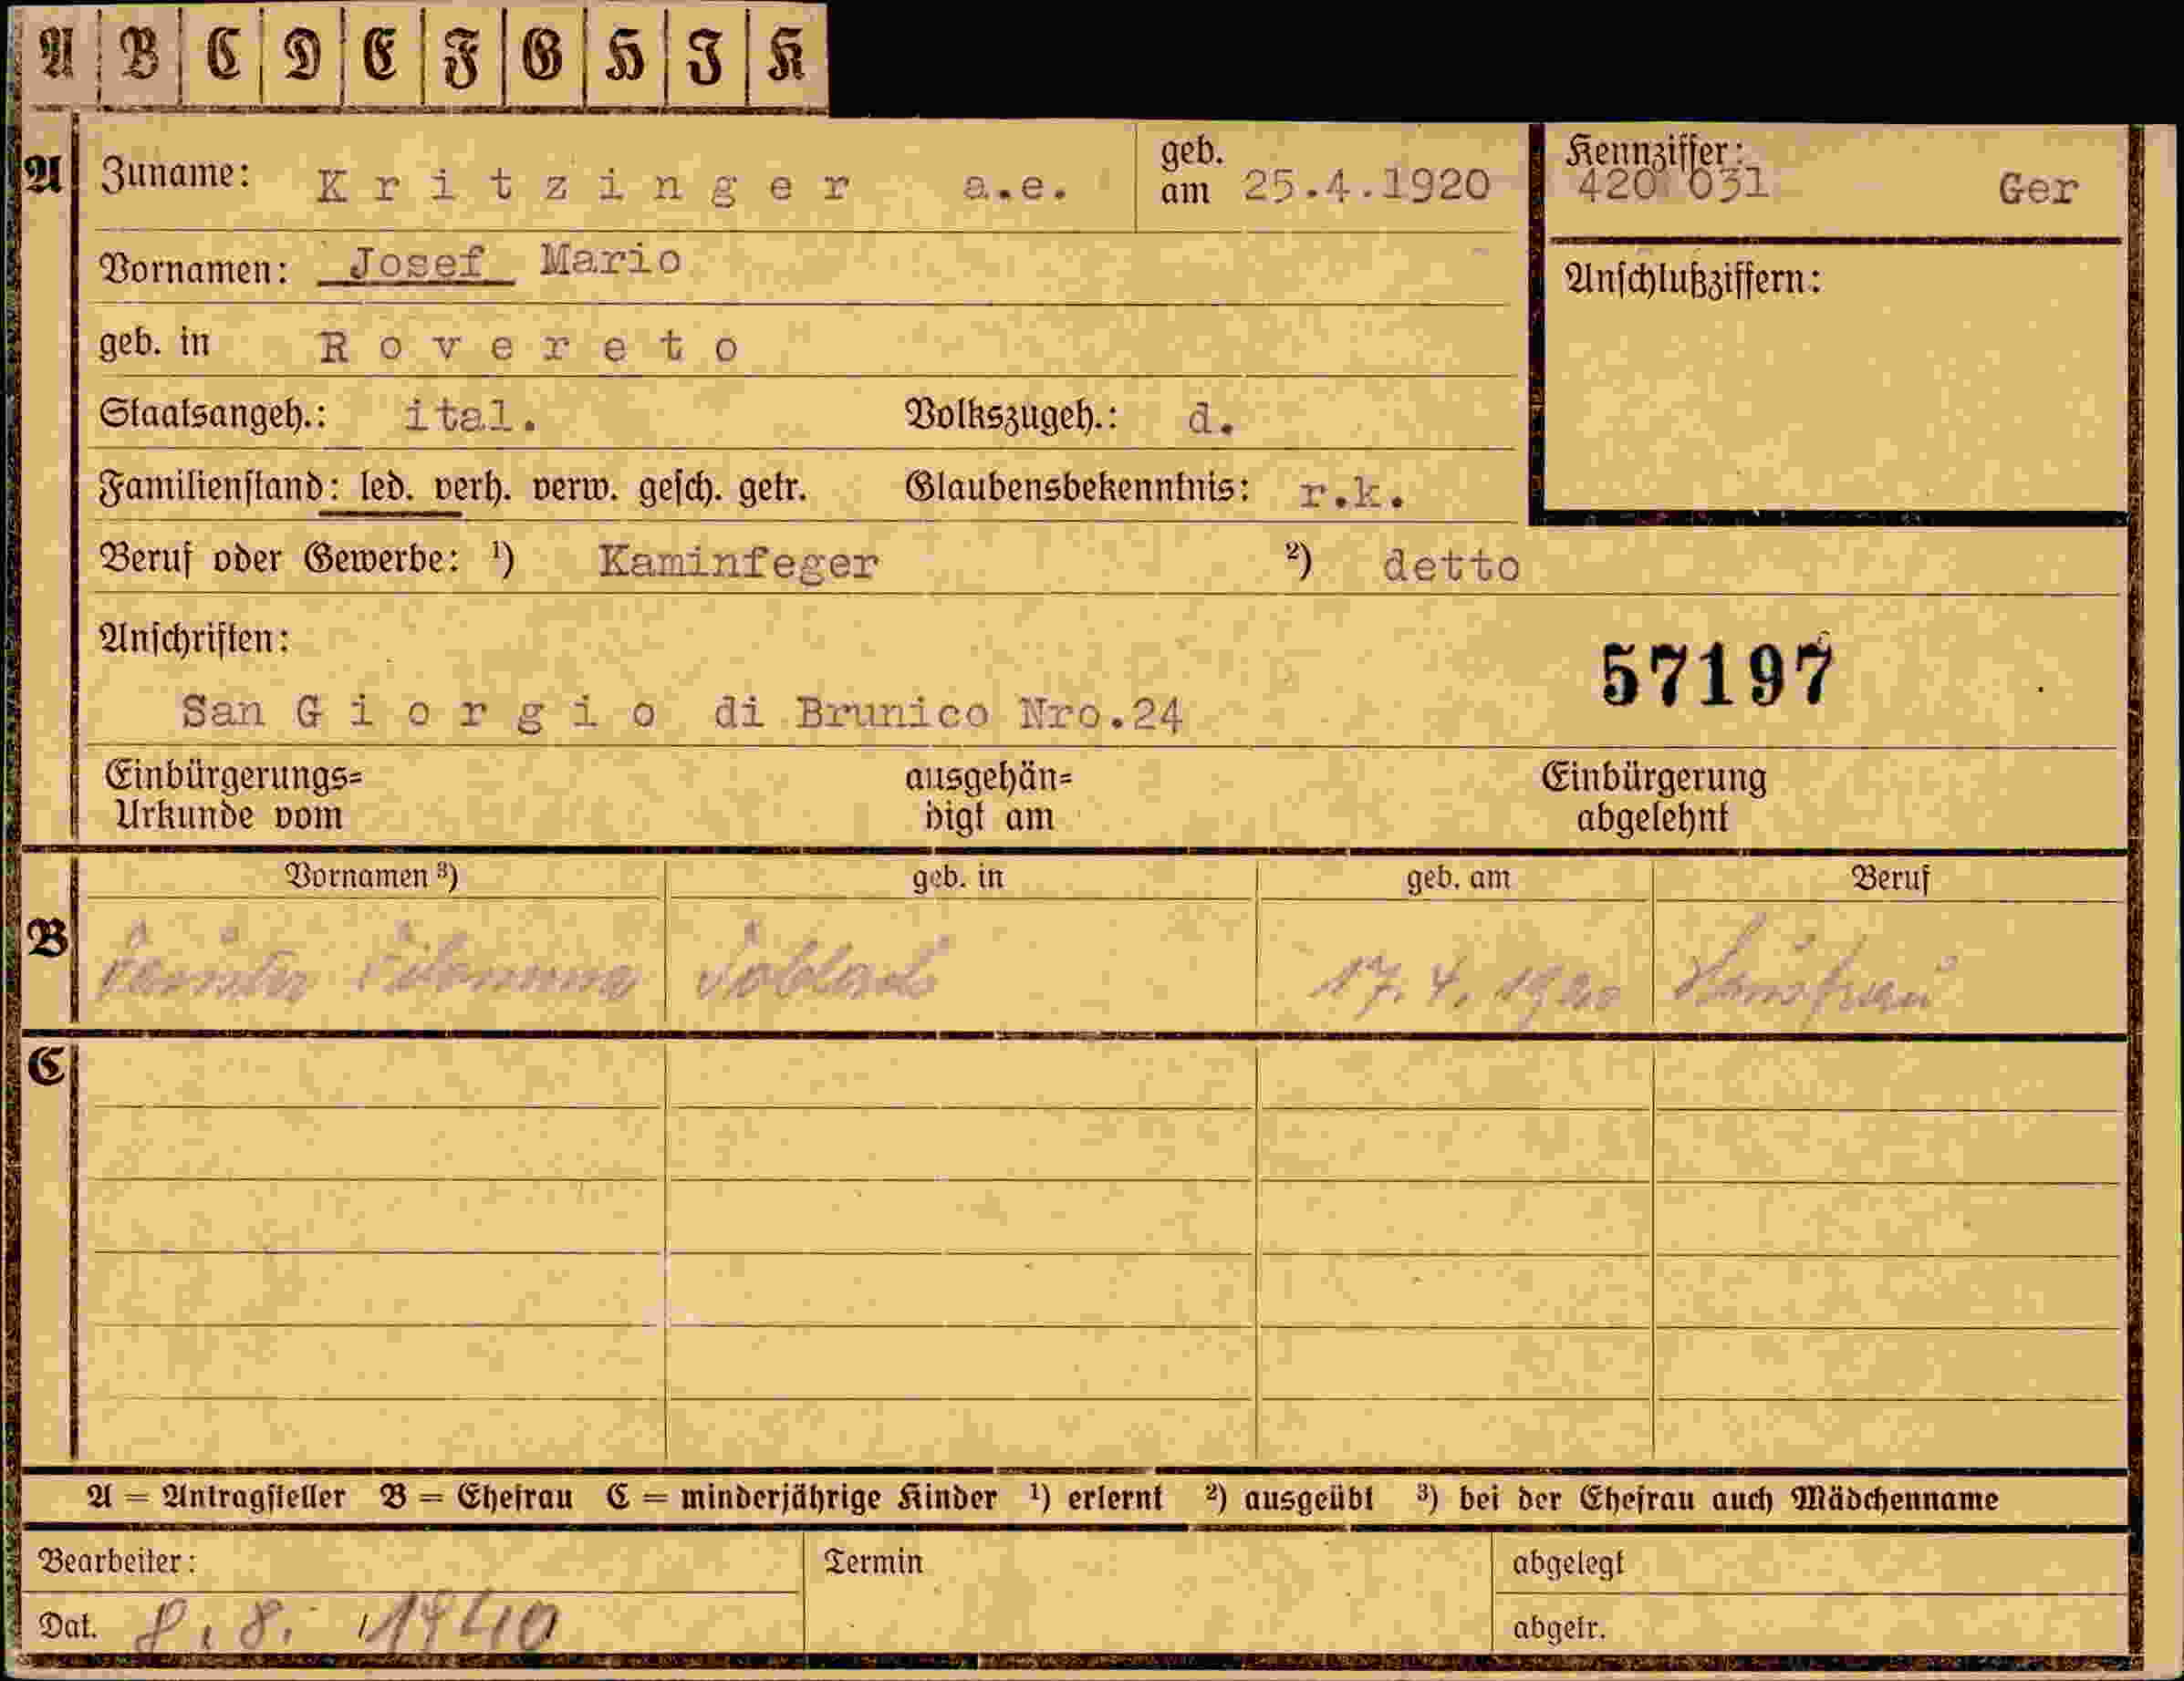 A B C D E F G H J K
A Zuname: Kritzinger a.e. geb. am 25.4.1920 Kennziffer: 420 031 Ger
Vornamen: Josef Mario Anschlußziffern:
geb. in Rovereto
Staatsangeh.: ital. Volkszugeh.: d.
Familienstand: led. verh. verw. gesch. getr. Glaubensbekenntnis: r.k.
Beruf oder Gewerbe: ¹) Kaminfeger ²) detto
Anschriften:
57197
San Giorgio di Brunico Nro.24
Einbürgerungs= ausgehän= Einbürgerung
Urkunde vom digt am abgelehnt
Vornamen ³) geb. in geb. am Beruf
B Filomena Toblach 17. 4. 1920 Hausfrau
C
A = Antragsteller B = Ehefrau C = minderjährige Kinder ¹) erlernt ²) ausgeübt ³) bei der Ehefrau auch Mädchenname
Bearbeiter: Termin abgelegt
Dat. 8. 8. 1940 abgetr.